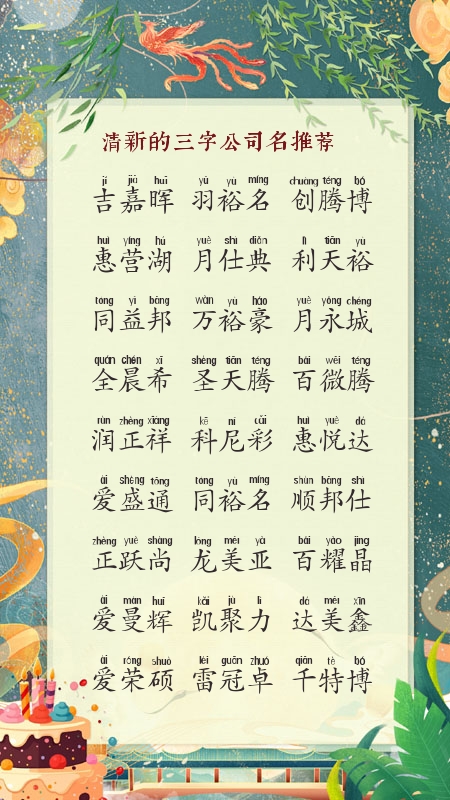 清新的三字公司名推荐
jí jiā huī yǔ yù míng chuàng téng bó
吉嘉晖 羽裕名 创腾博
huì yíng hú yuè shì diǎn lì tiān yù
惠营湖 月仕典 利天裕
tóng yì bāng wàn yù háo yuè yǒng chéng
同益邦 万裕豪 月永城
quán chén xī shèng tiān téng bǎi wēi téng
全晨希 圣天腾 百微腾
rùn zhèng xiáng kē ní cǎi huì yuè dá
润正祥 科尼彩 惠悦达
ài shèng tōng tóng yù míng shùn bāng shì
爱盛通 同裕名 顺邦仕
zhèng yuè shàng lóng měi yà bǎi yào jīng
正跃尚 龙美亚 百耀晶
ài màn huī kǎi jù lì dá měi xīn
爱曼辉 凯聚力 达美鑫
ài róng shuò léi guān zhuó qiān tè bó
爱荣硕 雷冠卓 千特博